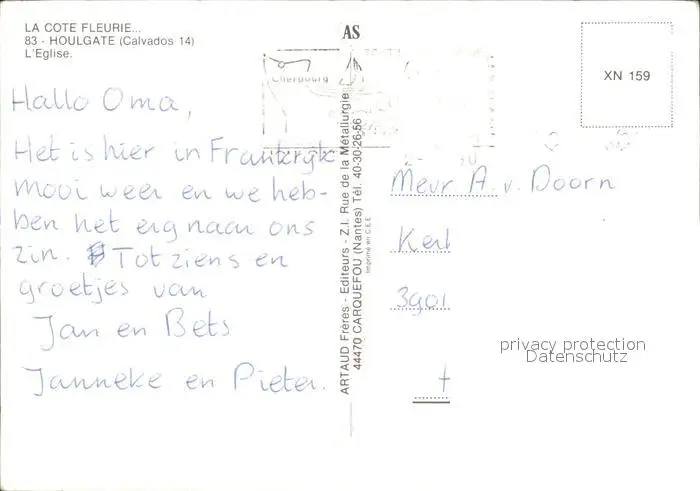 LA COTE FLEURIE...
83 - HOULGATE (Calvados 14)
L'Eglise.
AS
Cherbourg
XN 159
Hallo Oma,
Het is hier in Frankrijk
mooi weer en we heb-
ben het erg naar ons
zin. Tot ziens en
groetjes van
Jan en Bets
Janneke en Pieter.
ARTAUD Frères - Editeurs - Z.I. Rue de la Métallurgie
44470 CARQUEFOU (Nantes) Tél. 40-30-26-56
Imprimé en C.E.E.
Mevr A. v. Doorn
Kerl
privacy protection
Datenschutz